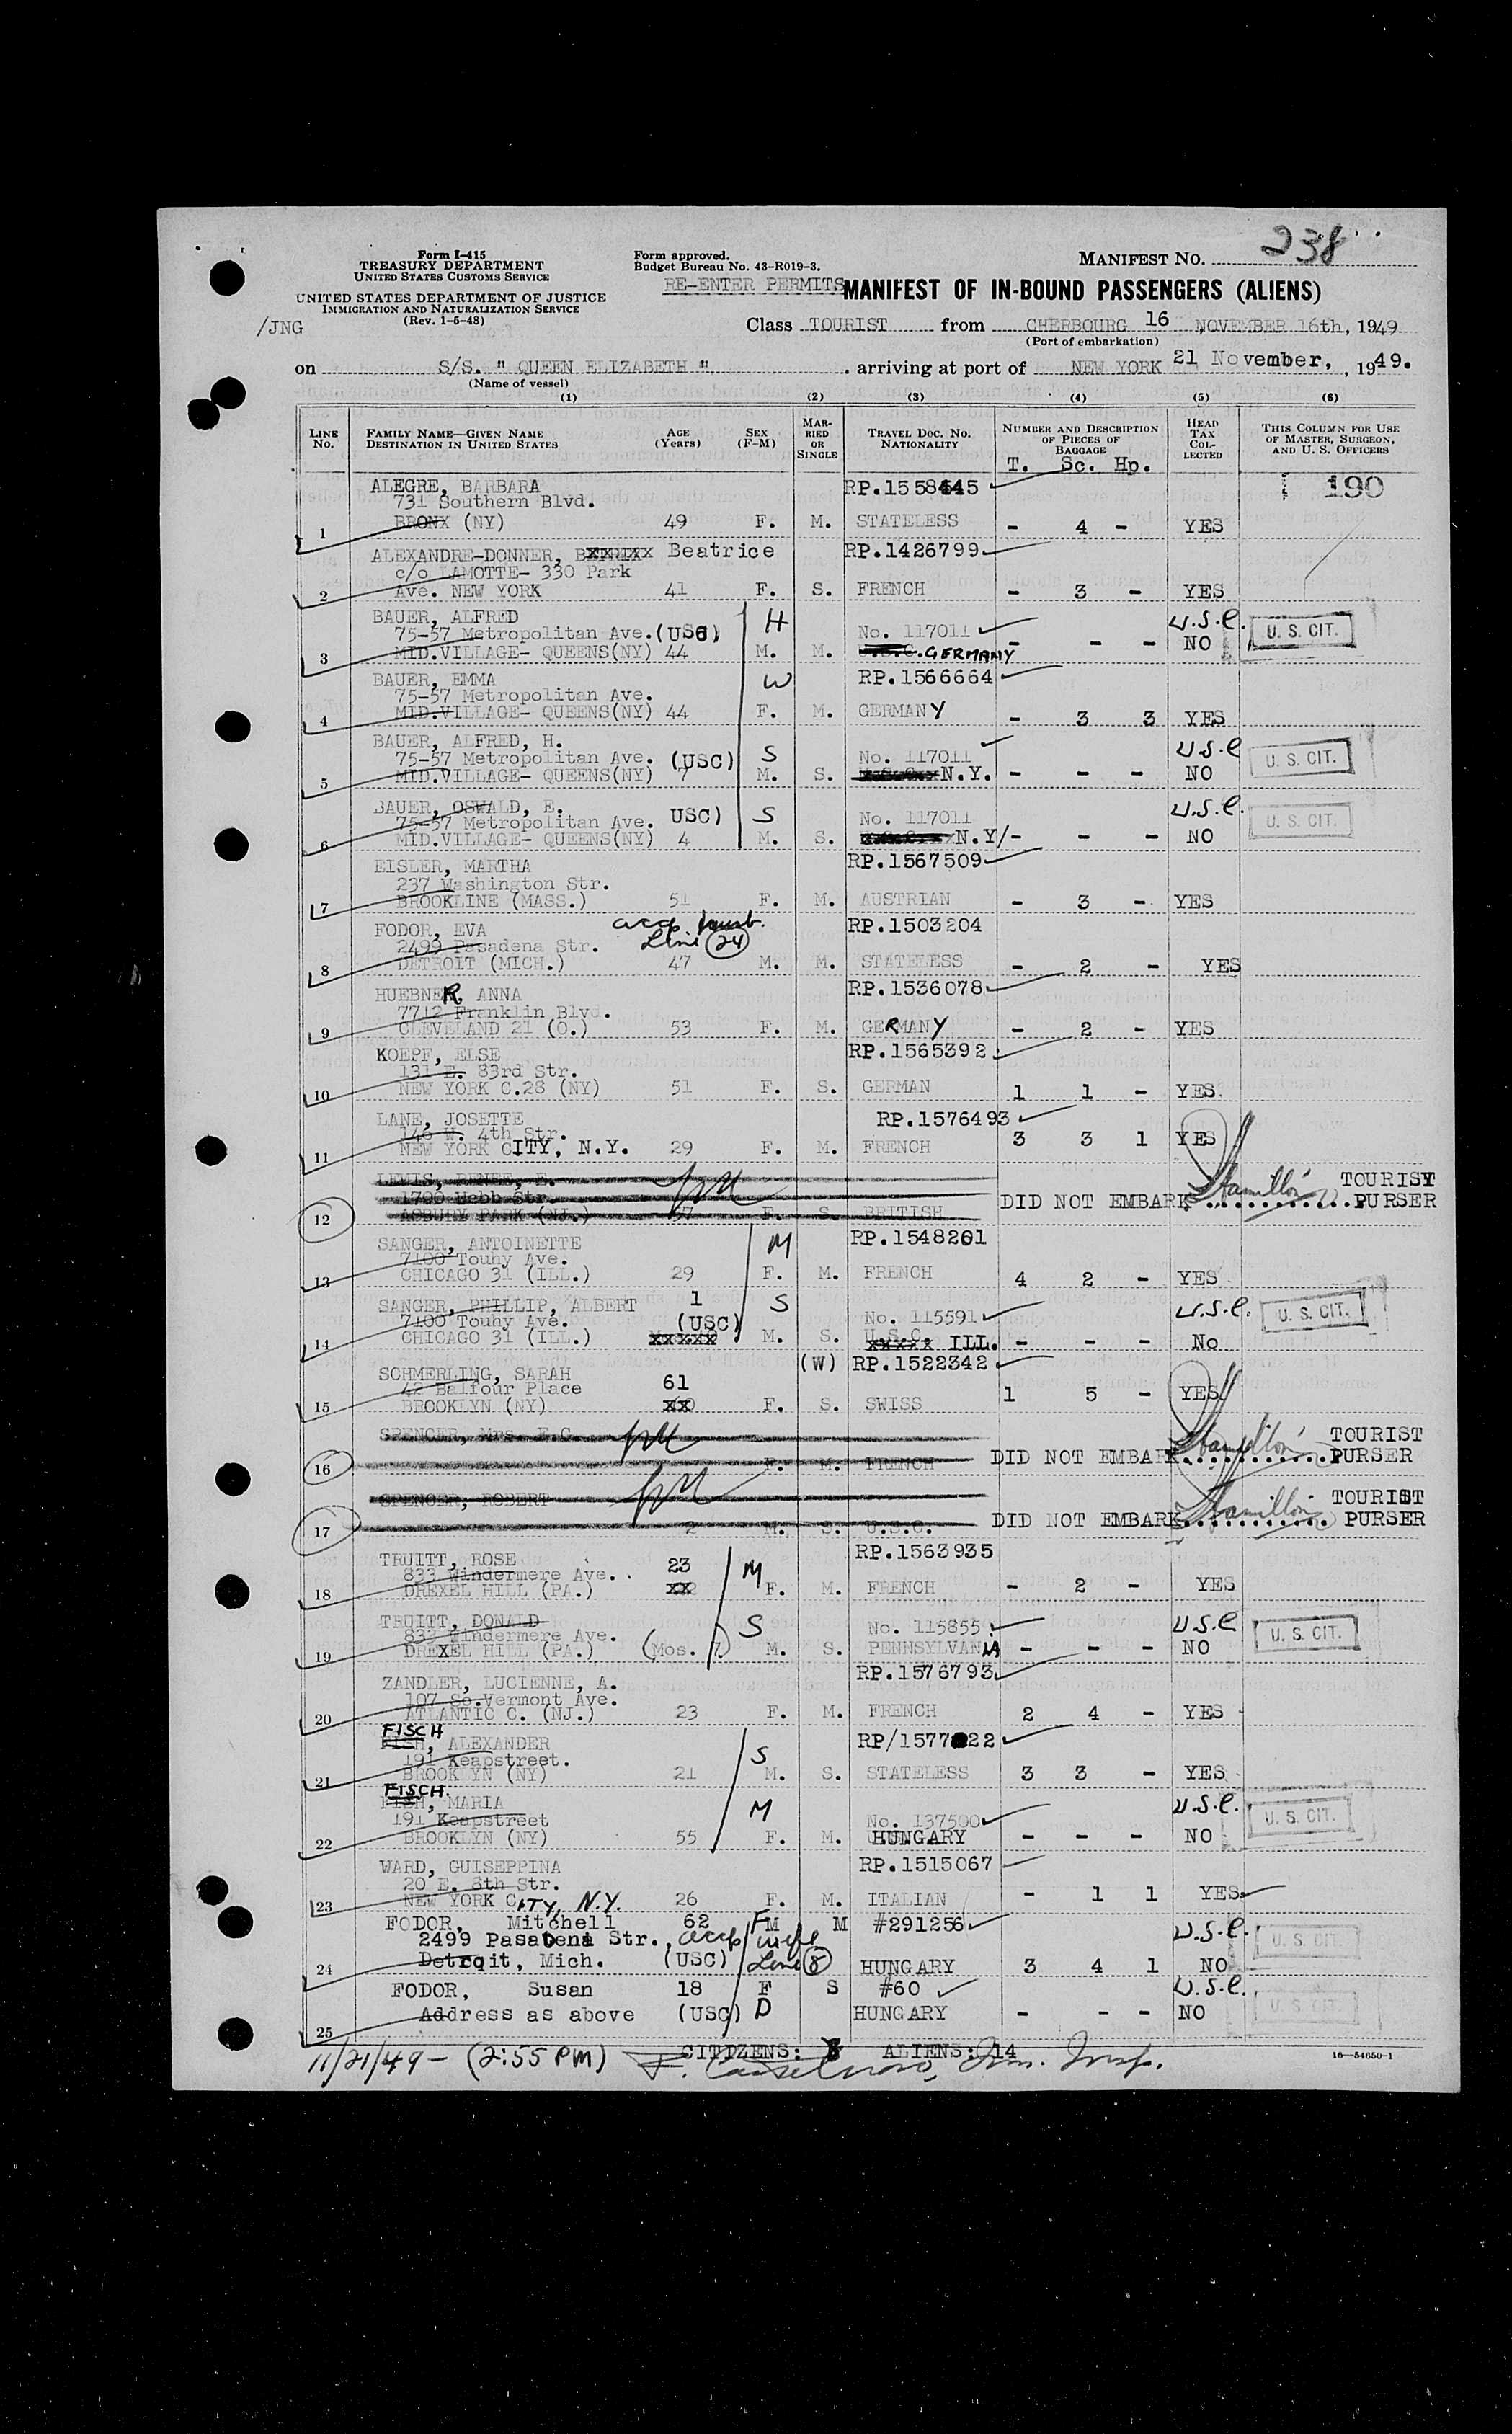 238
Form I-415
TREASURY DEPARTMENT
UNITED STATES CUSTOMS SERVICE
Form approved.
Budget Bureau No. 43-R019-3.
MANIFEST NO.
UNITED STATES DEPARTMENT OF JUSTICE
IMMIGRATION AND NATURALIZATION SERVICE
(Rev. 1-5-48)
RE-ENTER PERMITS
MANIFEST OF IN-BOUND PASSENGERS (ALIENS)
/JNG
Class TOURIST from CHERBOURG 16 NOVEMBER 16th, 1949
(Port of embarkation)
on S/S. " QUEEN ELIZABETH " arriving at port of NEW YORK 21 November, , 1949.
(Name of vessel)
(1) (2) (3) (4) (5) (6)
LINE No. FAMILY NAME—GIVEN NAME DESTINATION IN UNITED STATES AGE (Years) SEX (F-M) MARRIED OR SINGLE TRAVEL DOC. NO. NATIONALITY NUMBER AND DESCRIPTION OF PIECES OF BAGGAGE HEAD TAX COLLECTED THIS COLUMN FOR USE OF MASTER, SURGEON, AND U. S. OFFICERS
T. Sc. Hp.
190
ALEGRE, BARBARA RP.1558445
731 Southern Blvd.
1 BRONX (NY) 49 F. M. STATELESS - 4 - YES
ALEXANDRE-DONNER, Beatrice RP.1426799
c/o LAMOTTE- 330 Park
2 Ave. NEW YORK 41 F. S. FRENCH - 3 - YES
BAUER, ALFRED H U.S.C.
75-57 Metropolitan Ave. (USC) No. 117011 U. S. CIT.
3 MID.VILLAGE- QUEENS(NY) 44 M. M. U.S.C. GERMANY - - - NO
BAUER, EMMA W RP.1566664
75-57 Metropolitan Ave.
4 MID.VILLAGE- QUEENS(NY) 44 F. M. GERMANY - 3 3 YES
BAUER, ALFRED, H. S U.S.C
75-57 Metropolitan Ave. (USC) No. 117011 U. S. CIT.
5 MID.VILLAGE- QUEENS(NY) 7 M. S. N.Y. - - - NO
BAUER, OSWALD, E. S U.S.C.
75-57 Metropolitan Ave. USC) No. 117011 U. S. CIT.
6 MID.VILLAGE- QUEENS(NY) 4 M. S. N.Y/- - - NO
EISLER, MARTHA RP.1567509
237 Washington Str.
7 BROOKLINE (MASS.) 51 F. M. AUSTRIAN - 3 - YES
FODOR, EVA accp husb. RP.1503204
2499 Pasadena Str. Line 24
8 DETROIT (MICH.) 47 M. M. STATELESS - 2 - YES
HUEBNER, ANNA RP.1536078
7712 Franklin Blvd.
9 CLEVELAND 21 (O.) 53 F. M. GERMANY - 2 - YES
KOEPF, ELSE RP.1565392
131 E. 83rd Str.
10 NEW YORK C.28 (NY) 51 F. S. GERMAN 1 1 - YES.
LANE, JOSETTE RP.1576493
146 W. 4th Str.
11 NEW YORK CITY, N.Y. 29 F. M. FRENCH 3 3 1 YES
LEWIS, RENEE, E. TOURIST
1700 Webb Str. DID NOT EMBARK Hamilton PURSER
12 ASBURY PARK (NJ.) 57 F. S. BRITISH
SANGER, ANTOINETTE M RP.1548201
7100 Touhy Ave.
13 CHICAGO 31 (ILL.) 29 F. M. FRENCH 4 2 - YES
SANGER, PHILLIP, ALBERT 1 S U.S.C.
7100 Touhy Ave. (USC) No. 115591 U. S. CIT.
14 CHICAGO 31 (ILL.) xxxxx M. S. ILL. - - - No
SCHMERLING, SARAH (W) RP.1522342
42 Balfour Place 61
15 BROOKLYN (NY) F. S. SWISS 1 5 - YES
SPENCER, Mrs. E.C. TOURIST
16 F. M. FRENCH DID NOT EMBARK Hamilton PURSER
SPENCER, ROBERT TOURIST
17 2 M. S. U.S.C. DID NOT EMBARK Hamilton PURSER
TRUITT, ROSE M RP.1563935
833 Windermere Ave. 23
18 DREXEL HILL (PA.) F. M. FRENCH - 2 - YES
TRUITT, DONALD S U.S.C
833 Windermere Ave. No. 115855 U. S. CIT.
19 DREXEL HILL (PA.) (Mos. 7) M. S. PENNSYLVANIA - - - NO
ZANDLER, LUCIENNE, A. RP.1576793
107 So.Vermont Ave.
20 ATLANTIC C. (NJ.) 23 F. M. FRENCH 2 4 - YES
FISCH
FISH, ALEXANDER S RP/1577 22
191 Keapstreet.
21 BROOKLYN (NY) 21 M. S. STATELESS 3 3 - YES
FISCH.
FISH, MARIA M U.S.C.
191 Keapstreet No. 137500 U. S. CIT.
22 BROOKLYN (NY) 55 F. M. HUNGARY - - - NO
WARD, GUISEPPINA RP.1515067
20 E. 8th Str.
23 NEW YORK CITY, N.Y. 26 F. M. ITALIAN - 1 1 YES
FODOR, Mitchell 62 M M #291256 U.S.C.
2499 Pasadena Str., accp wife U. S. CIT.
24 Detroit, Mich. (USC) Line 8 HUNGARY 3 4 1 NO
FODOR, Susan 18 F S #60 U.S.C.
25 Address as above (USC) D HUNGARY - - - NO U. S. CIT.
CITIZENS: 8 ALIENS: 14
11/21/49 - (2:55 PM) Imm. Insp.
16—54650-1